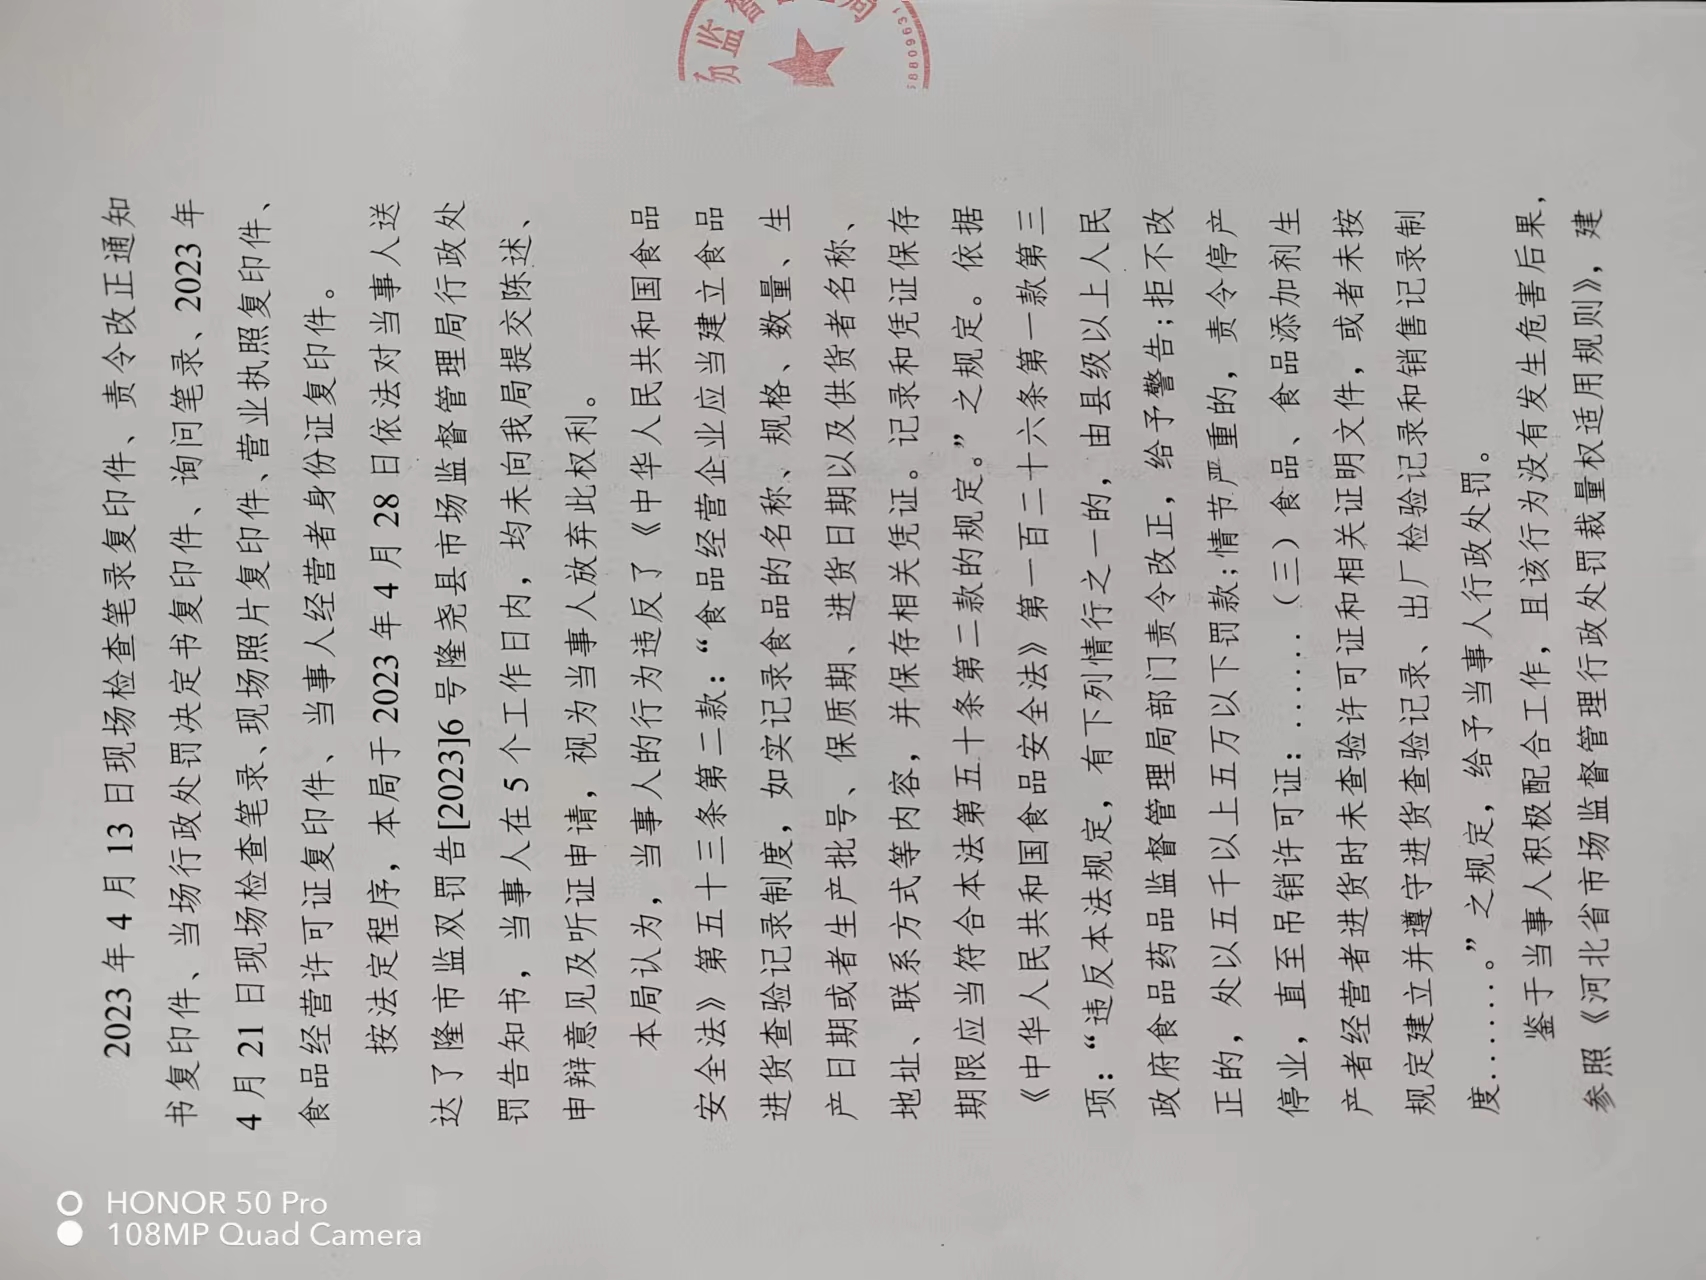 2023 年 4 月 13 日现场检查笔录复印件、责令改正通知
书复印件、当场行政处罚决定书复印件、询问笔录、2023 年
4 月 21 日现场检查笔录、现场照片复印件、营业执照复印件、
食品经营许可证复印件、当事人经营者身份证复印件。
按法定程序，本局于 2023 年 4 月 28 日依法对当事人送
达了隆市监双罚告[2023]6 号隆尧县市场监督管理局行政处
罚告知书，当事人在 5 个工作日内，均未向我局提交陈述、
申辩意见及听证申请，视为当事人放弃此权利。
本局认为，当事人的行为违反了《中华人民共和国食品
安全法》第五十三条第二款：“食品经营企业应当建立食品
进货查验记录制度，如实记录食品的名称、规格、数量、生
产日期或者生产批号、保质期、进货日期以及供货者名称、
地址、联系方式等内容，并保存相关凭证。记录和凭证保存
期限应当符合本法第五十条第二款的规定。”之规定。依据
《中华人民共和国食品安全法》第一百二十六条第一款第三
项：“违反本法规定，有下列情行之一的，由县级以上人民
政府食品药品监督管局部门责令改正，给予警告；拒不改
正的，处以五千以上五万以下罚款；情节严重的，责令停产
停业，直至吊销许可证：……（三）食品、食品添加剂生
产者经营者进货时未查验许可证和相关证明文件，或者未按
规定建立并遵守进货查验记录、出厂检验记录和销售记录制
度……。”之规定，给予当事人行政处罚。
鉴于当事人积极配合工作，且该行为没有发生危害后果，
参照《河北省市场监督管理行政处罚裁量权适用规则》，建
场监督管理局
HONOR 50 Pro
108MP Quad Camera